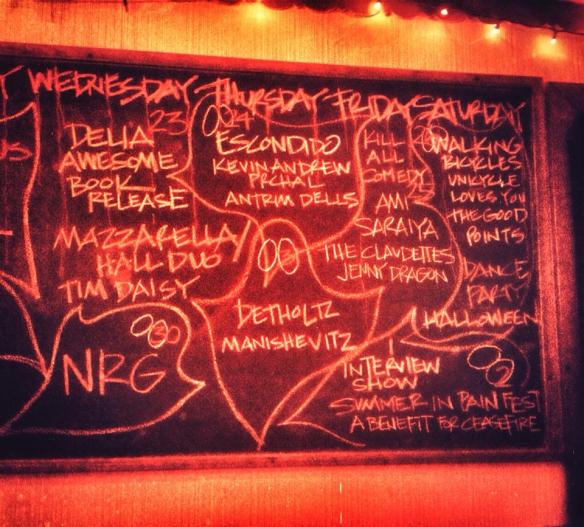 WEDNESDAY
23
DELIA
AWESOME
BOOK
RELEASE
MAZZARELLA/
HALL DUO
TIM DAISY
NRG
THURSDAY
24
ESCONDIDO
KEVIN ANDREW
PRCHAL
ANTRIM DELLS
DETHOLTZ
MANISHEVITZ
FRIDAY
KILL
ALL
COMEDY
25
AMI
SARAIYA
THE CLAUDETTES
JENNY DRAGON
INTERVIEW
SHOW
SUMMER IN PAIN FEST
A BENEFIT FOR CEASEFIRE
SATURDAY
WALKING
BICYCLES
UNICYCLE
LOVES YOU
THE GOOD
POINTS
DANCE
PARTY
HALLOWEEN
2